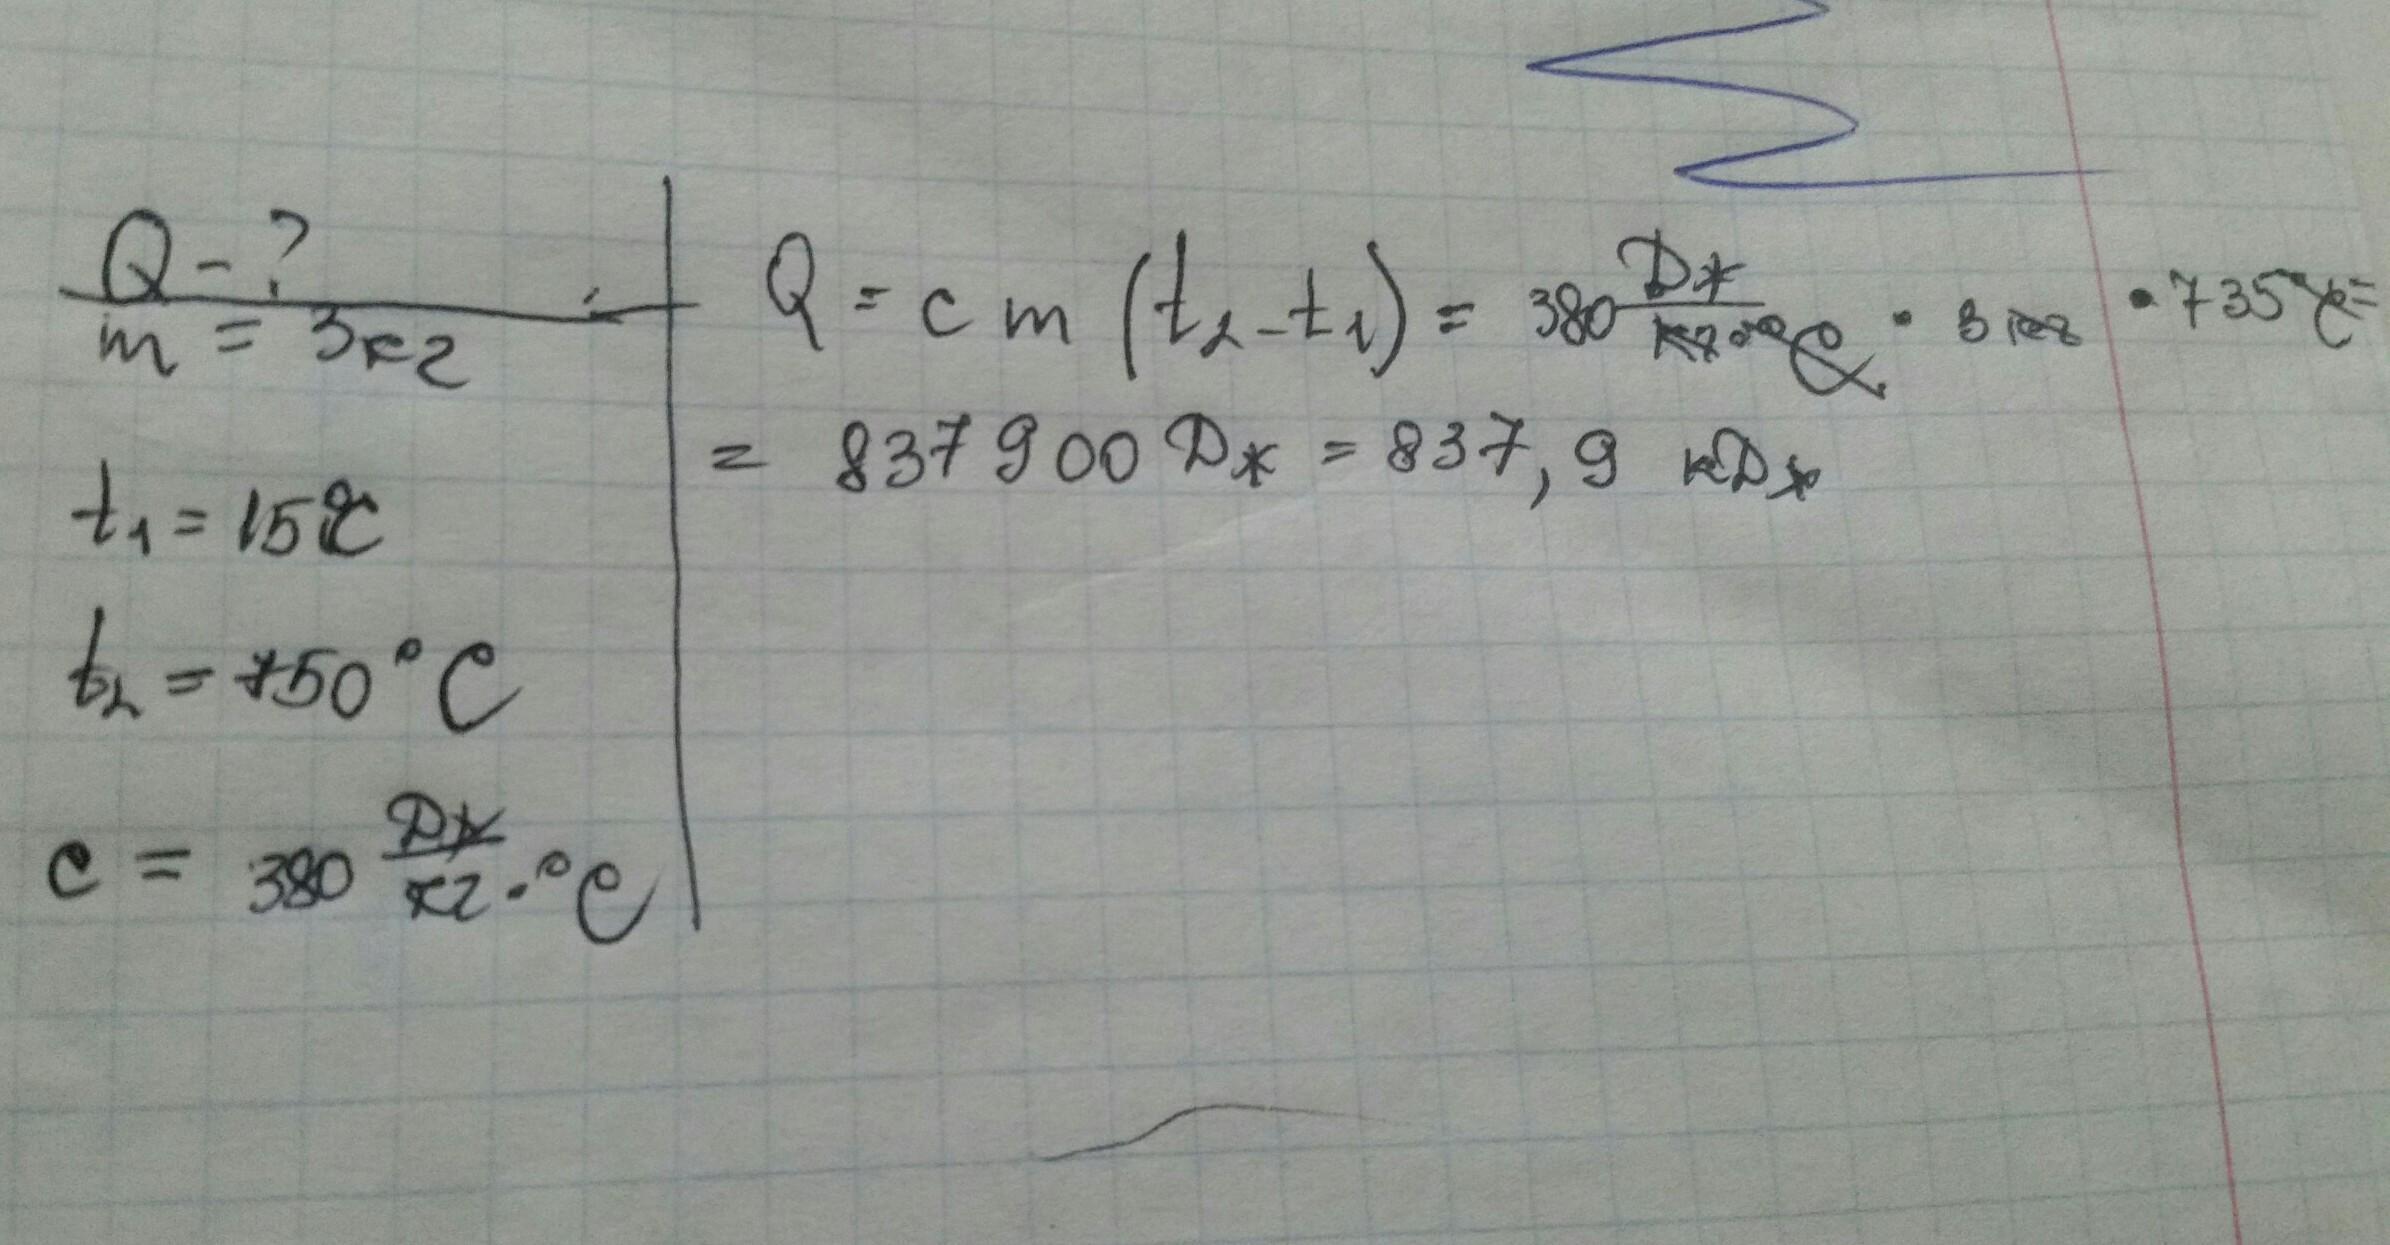 Q - ?
m = 3кг
t₁ = 15°C
t₂ = 750°C
c = 380 Дж/кг·°C
Q = c m (t₂ - t₁) = 380 Дж/кг·°C · 3 кг · 735°C =
= 837 900 Дж = 837,9 кДж